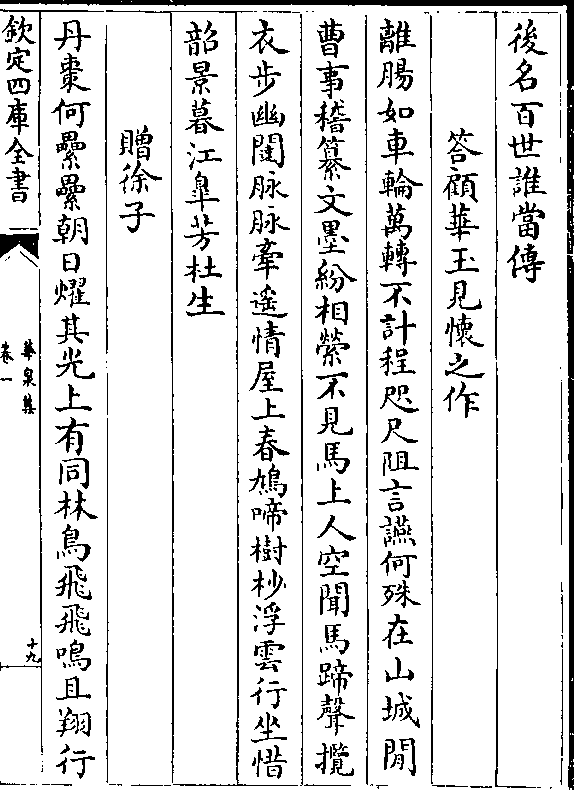 後名百世誰當傳
答顧華玉見懷之作
離腸如車輪萬轉不計程咫尺阻言讌何殊在山城閒
曹事稽纂文墨紛相縈不見馬上人空聞馬蹄聲攬
衣步幽闥脉脉牽遥情屋上春鳩啼樹杪浮雲行坐惜
韶景暮江臯芳杜生
贈徐子
丹棗何纍纍朝日燿其光上有同林鳥飛飛鳴且翔行
欽定四庫全書
華泉集
卷一
十九